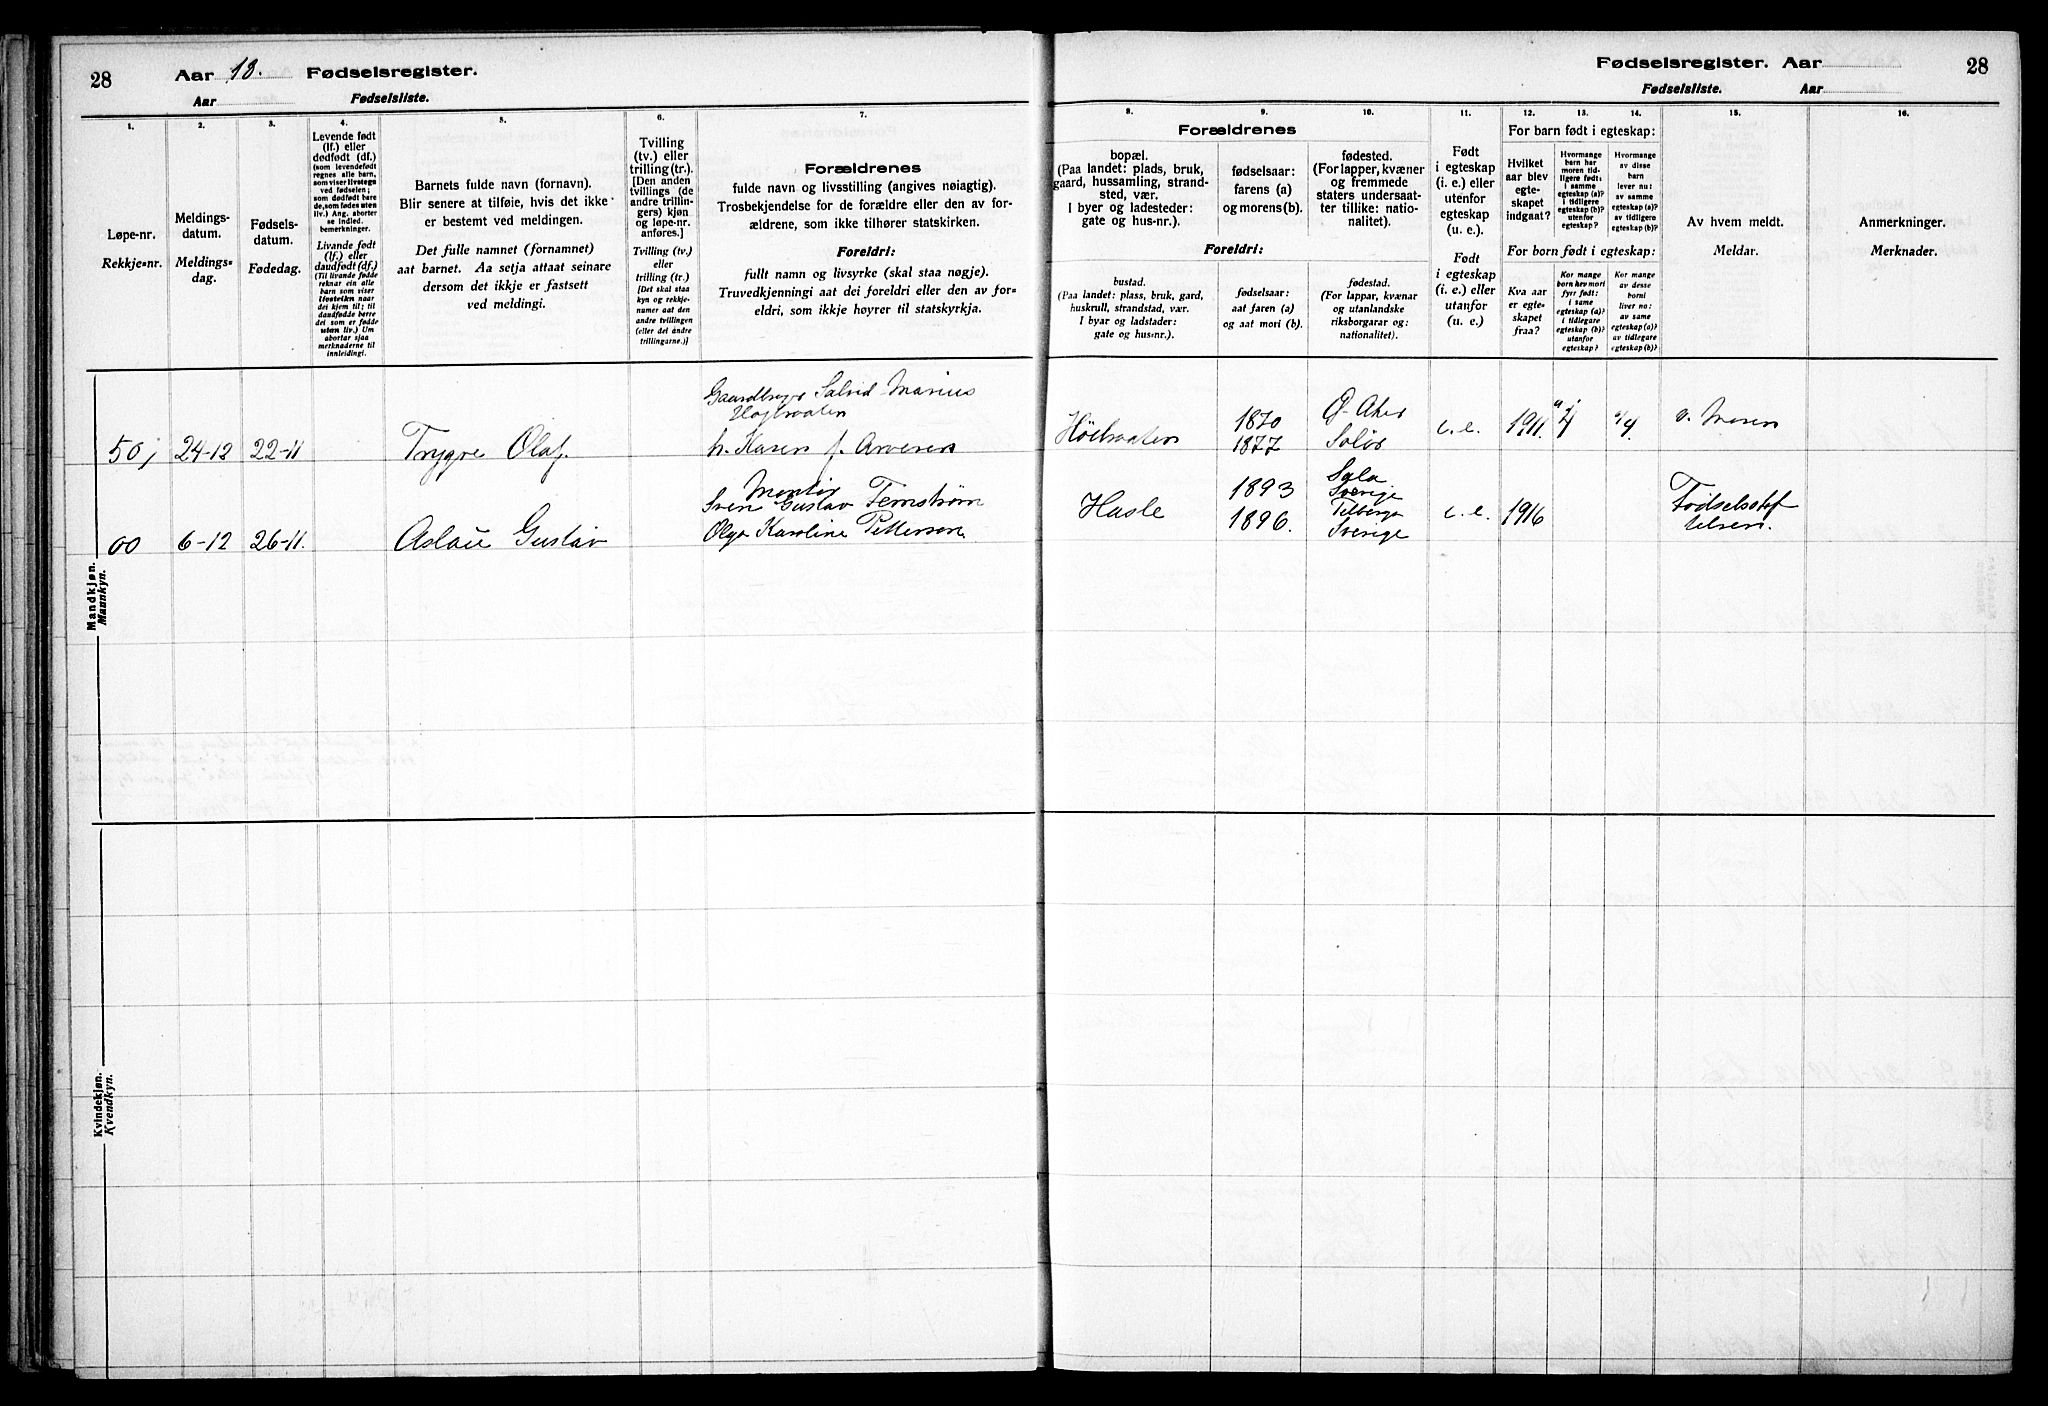 28 Aar 18. Fødselsregister.
Aar Fødselsliste.
1.
Løpe-nr.
Rekkje-nr.
2.
Meldings-
datum.
Meldings-
dag.
3.
Fødsels-
datum.
Fødedag.
4.
Levende født
(lf.) eller
dødfødt (df.)
(som levendefødt
regnes alle barn,
som viser livstegn
ved fødselen;
som dødfødt bare
de, som fødes uten
liv.) Ang. aborter
se indled.
bemerkninger.
Livande født
(lf.) eller
daudfødt (df.)
(Til livande fødde
reknar ein alle
born som viser
livsteikn naar
dei kjem til; til
daudfødde berre
dei som er fødde
utan liv.) Um
abortar sjaa
merknaderne til
innleidingi.
5.
Barnets fulde navn (fornavn).
Blir senere at tilføie, hvis det ikke
er bestemt ved meldingen.
Det fulle namnet (fornamnet)
aat barnet. Aa setja attaat seinare
dersom det ikkje er fastsett
ved meldingi.
6.
Tvilling
(tv.) eller
trilling (tr.)
[Den anden
tvillings (de
andre trillin-
gers) kjøn
og løpe-nr.
anføres.]
Tvilling (tv.)
eller
trilling (tr.)
[Det skal staa
kyn og rekkje-
numer aat den
andre tvillingen
(eller dei andre
trillingarne.)]
7.
Forældrenes
fulde navn og livsstilling (angives nøiagtig).
Trosbekjendelse for de forældre eller den av for-
ældrene, som ikke tilhører statskirken.
Foreldri:
fullt namn og livsyrke (skal staa nøgje).
Truvedkjenningi aat dei foreldri eller den av for-
eldri, som ikkje høyrer til statskyrkja.
Fødselsregister. Aar 28
Fødselsliste. Aar
Forældrenes
8.
bopæl.
(Paa landet: plads, bruk,
gaard, hussamling, strand-
sted, vær.
I byer og ladesteder:
gate og hus-nr.).
9.
fødselsaar:
farens (a)
og morens (b).
10.
fødested.
(For lapper, kvæner
og fremmede
staters undersaat-
ter tillike: natio-
nalitet).
Foreldri:
bustad.
(Paa landet: plass, bruk, gard,
huskrull, strandstad, vær.
I byar og ladstader:
gate og hus-nr.).
fødselsaar:
aat faren (a)
og aat mori (b).
fødestad.
(For lappar, kvænar
og utanlandske
riksborgarar og:
nationalitet).
11.
Født
i egteskap
(i. e.) eller
utenfor
egteskap
(u. e.).
Født
i egteskap
(i. e.) eller
utanfor
(u. e.).
12. 13. 14.
For barn født i egteskap:
Hvilket
aar blev
egte-
skapet
indgaat?
Hvormange
barn har
moren tid-
ligere født:
i samme
egteskap (a)?
i tidligere
egteskap (b)?
utenfor
egteskap?
Hvormange
av disse
barn
lever nu:
av samme
egteskap (a)?
av tidligere
egteskap (b)?
For born født i egteskap:
Kva aar
er egte-
skapet
fraa?
Kor mange
born hev mori
fyrr født:
i same
egteskap (a)?
i tidlegare
egteskap (b)?
utanfor
egteskap?
Kor mange
av desse
borni
liver no:
av same
egteskap (a)?
av tidlegare
egteskap (b)?
15.
Av hvem meldt.
Meldar.
16.
Anmerkninger.
Merknader.
Mandkjøn.
Mannkyn.
Marius
50, 24-12 22-11 Trygve Olaf. h. Karen f. Arvesen
1870 Ø. Aker
1877 Solør
1911. 4 Moren
Montør
Sven Gustav Fernstrøm
00 6-12 26-11. Aslau Gustav Olga Karoline Pettersen
Hasle
1893 Sala
Sverige
1896. Tilberga
Sverige
1916
Fødselsstif
telsen.
Kvindekjøn.
Kvendkyn.